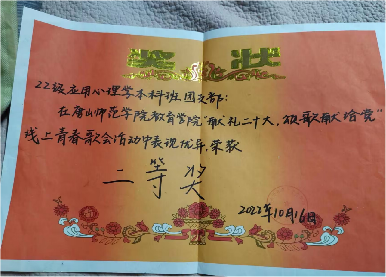 奖 状
22级应用心理学本科班团支部:
在唐山师范学院教育学院"献礼二十大,颂歌献给党"
线上青春歌会活动中表现优异,荣获
二等奖
2022年10月16日